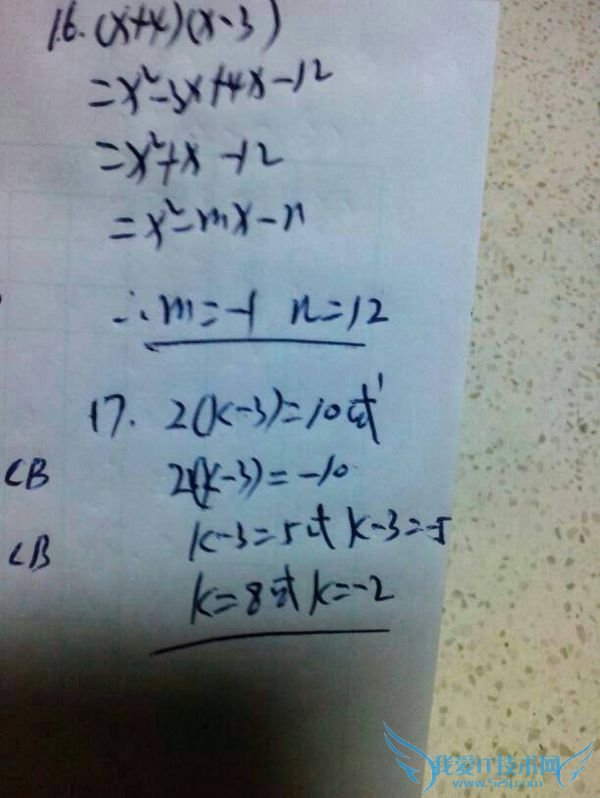 16. (x+4)(x-3)
=x²-3x+4x-12
=x²+x-12
=x²-mx-n
∴m=-1 n=12
17. 2(k-3)=10或
CB
2(k-3)=-10
k-3=5或k-3=-5
CB
k=8或k=-2
我爱IT技术网
www.52ij.com